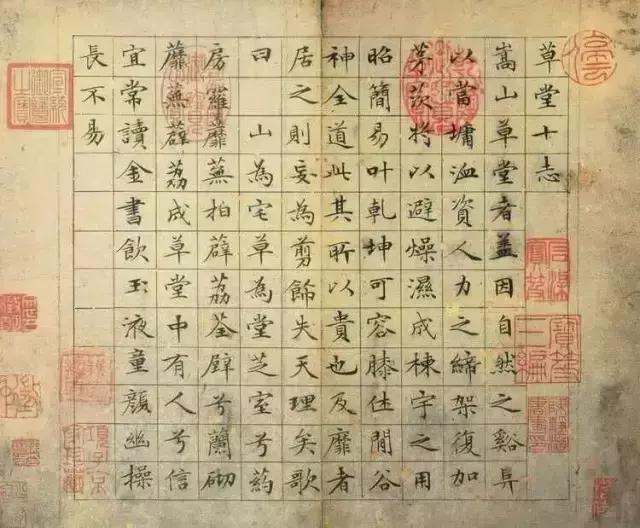 草堂十志
嵩山草堂者盖因自然之谿阜
以當墉洫資人力之締架復加
茅茨將以避燥濕成棟宇之用
昭簡易叶乾坤可容膝休閒谷
神全道此其所以貴也及靡者
居之則妄為剪飾失天理矣歌
曰山為宅草為堂芝室兮葯
房羅蘼蕪拍薜荔荃壁兮蘭砌
蘼蕪薜荔成草堂中有人兮信
宜常讀金書飲玉液童顏幽操
長不易
石渠寶笈
寶笈三編